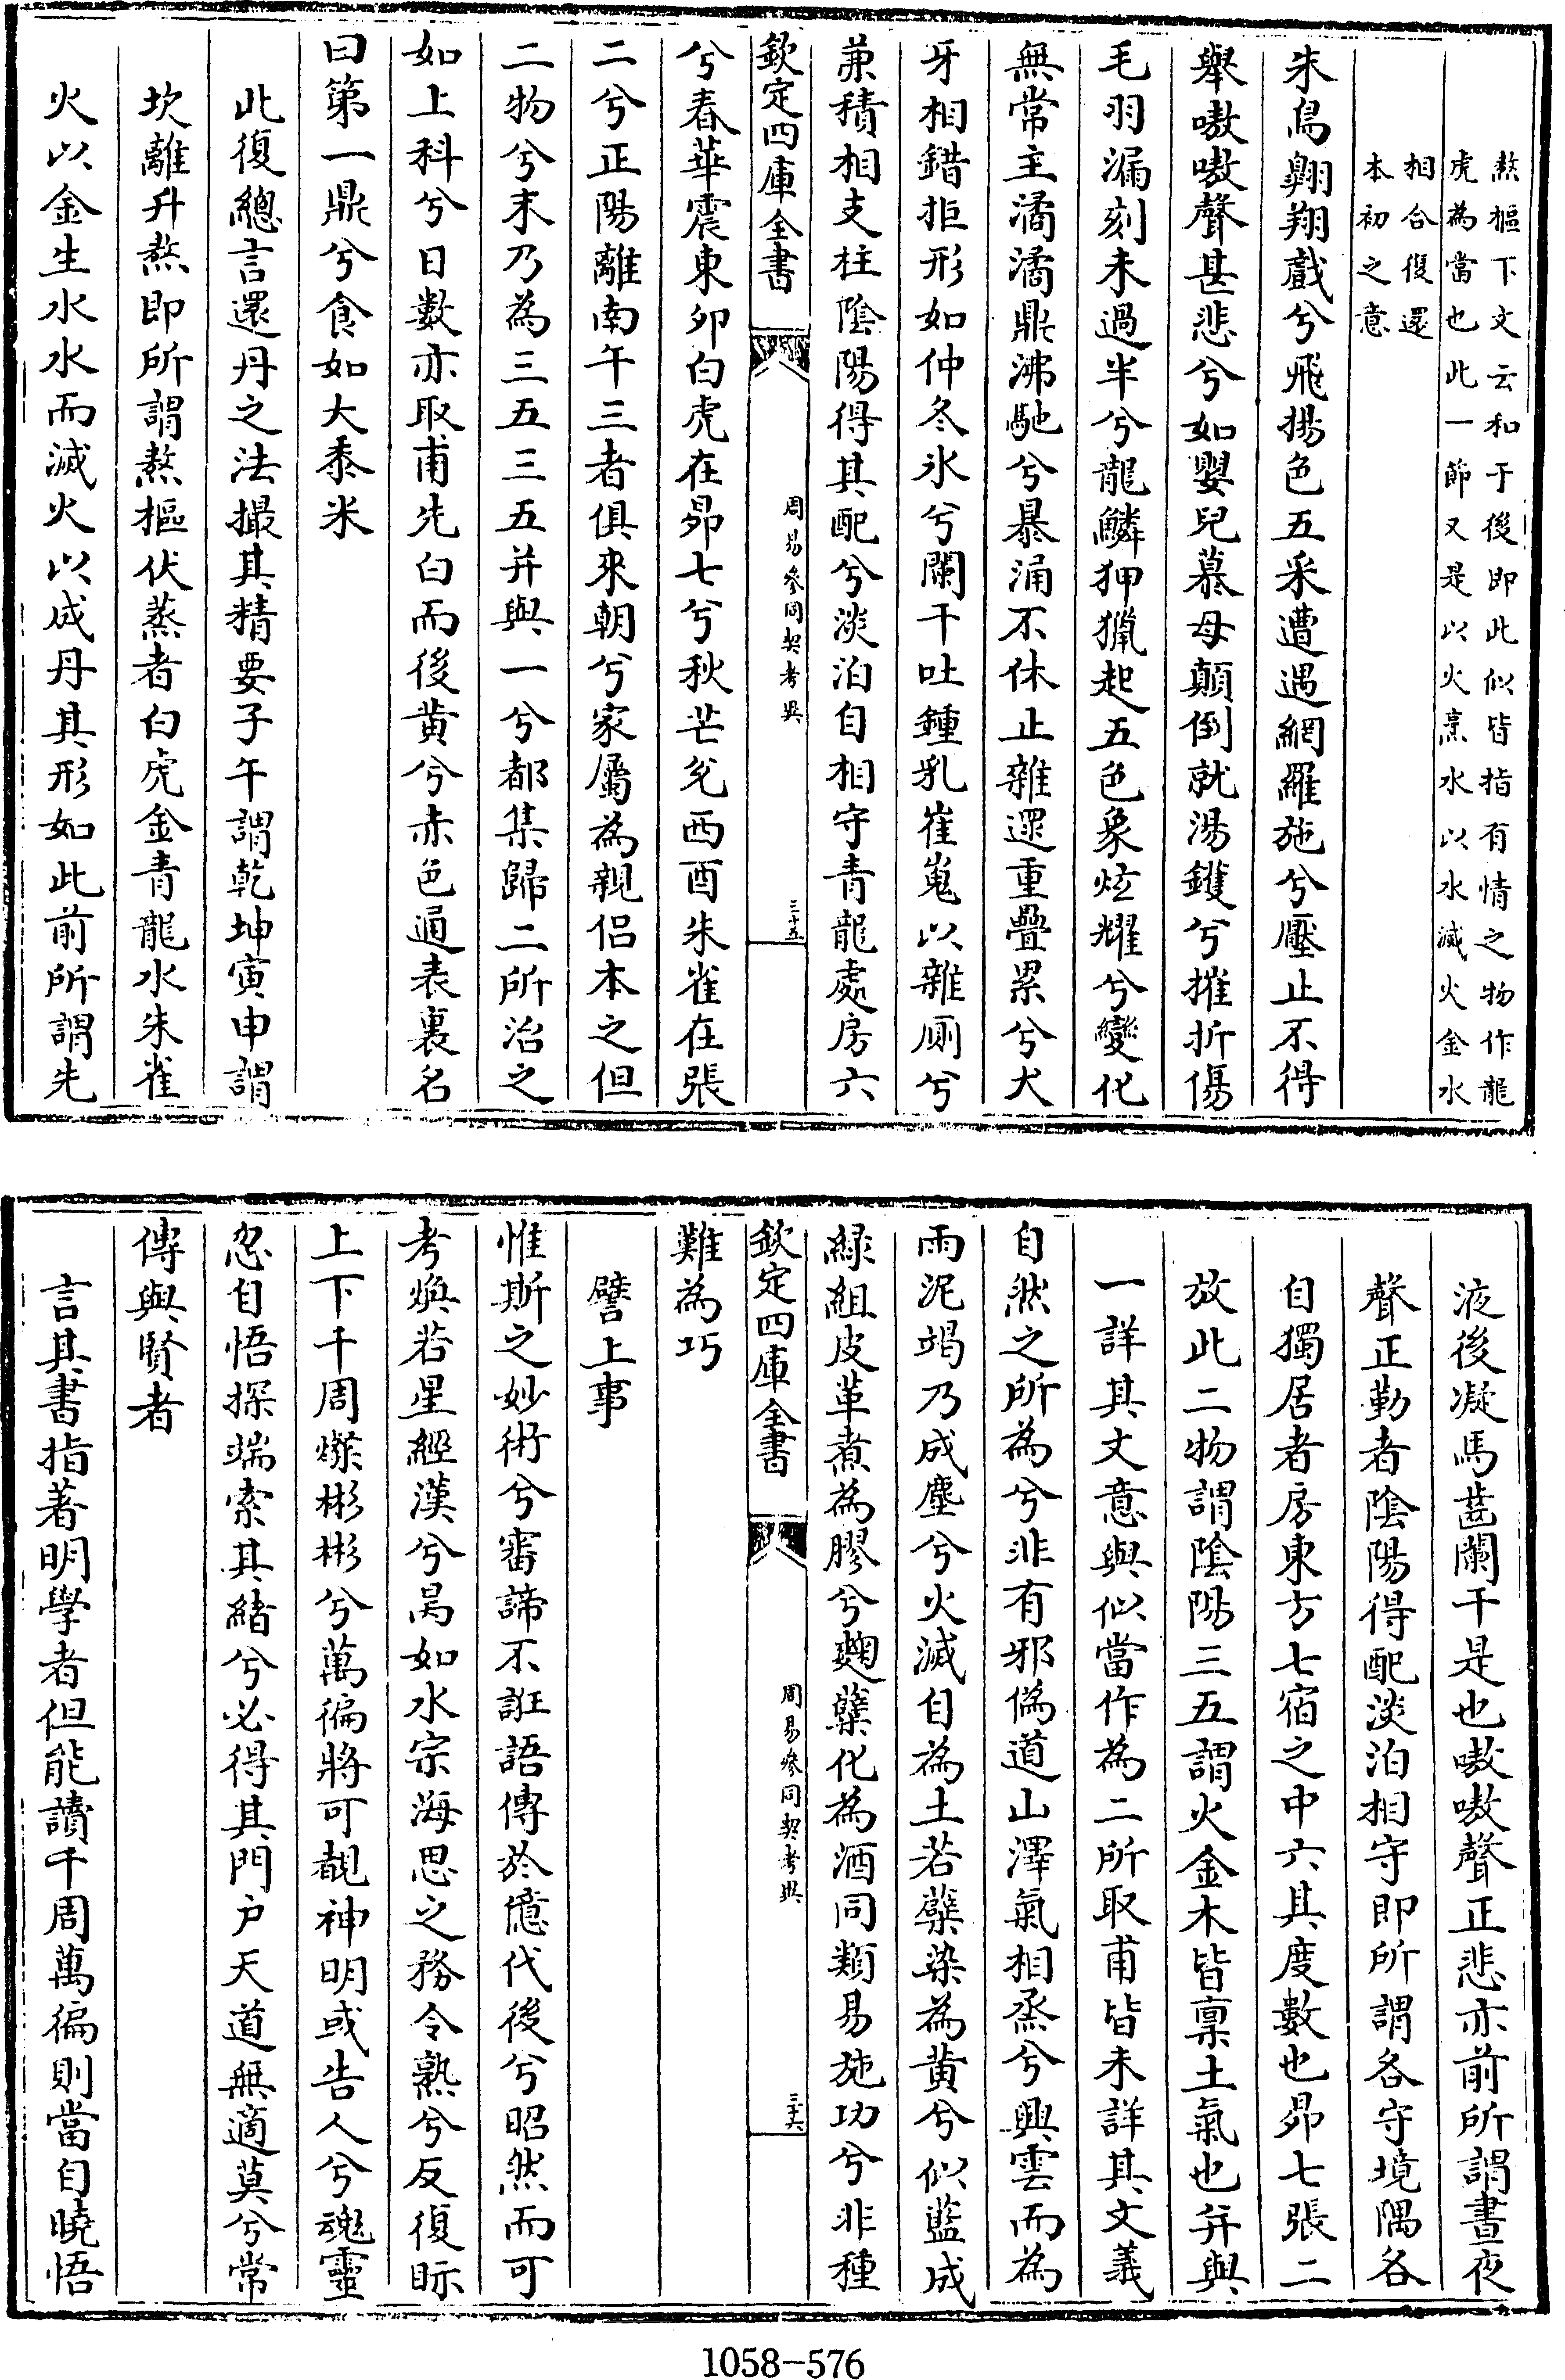 熬樞下文云和于後即此似皆指有情之物作龍
虎為當也此一節又是以火烹水以水滅火金水
相合復還
本初之意
朱鳥翺翔戲兮飛揚色五采遭遇網羅施兮壓止不得
舉嗷嗷聲甚悲兮如嬰兒慕母顛倒就湯鑊兮摧折傷
毛羽漏刻未過半兮龍鱗狎獵起五色象炫耀兮變化
無常主潏潏鼎沸馳兮暴涌不休止雜還重疊累兮犬
牙相錯拒形如仲冬氷兮闌干吐鍾乳崔嵬以雜厠兮
兼積相支柱陰陽得其配兮淡泊自相守青龍處房六
欽定四庫全書
周易參同契考異
三十五
兮春華震東卯白虎在昴七兮秋芒兌西酉朱雀在張
二兮正陽離南午三者俱來朝兮家屬為親侶本之但
二物兮末乃為三五三五并與一兮都集歸二所治之
如上科兮日數亦取甫先白而後黄兮赤色通表裏名
曰第一鼎兮食如大黍米
此復總言還丹之法撮其精要子午謂乾坤寅申謂
坎離升熬即所謂熬樞伏蒸者白虎金青龍水朱雀
火以金生水水而滅火以成丹其形如此前所謂先
液後凝馬齒闌干是也嗷嗷聲正悲亦前所謂晝夜
聲正勤者陰陽得配淡泊相守即所謂各守境隅各
自獨居者房東方七宿之中六其度數也昴七張二
放此二物謂陰陽三五謂火金木皆禀土氣也并與
一詳其文意與似當作為二所取甫皆未詳其文義
自然之所為兮非有邪偽道山澤氣相烝兮興雲而為
雨泥竭乃成塵兮火滅自為土若蘖染為黄兮似藍成
緑組皮革煮為膠兮麴糵化為酒同類易施功兮非種
欽定四庫全書
周易參同契考異
三十六
難為巧
譬上事
惟斯之妙術兮審諦不誑語傳於億代後兮昭然而可
考焕若星經漢兮昺如水宗海思之務令熟兮反復眎
上下千周燦彬彬兮萬徧將可覩神明或告人兮魂靈
忽自悟探端索其緒兮必得其門户天道無適莫兮常
傳與賢者
言其書指著明學者但能讀千周萬徧則當自曉悟
1058-576